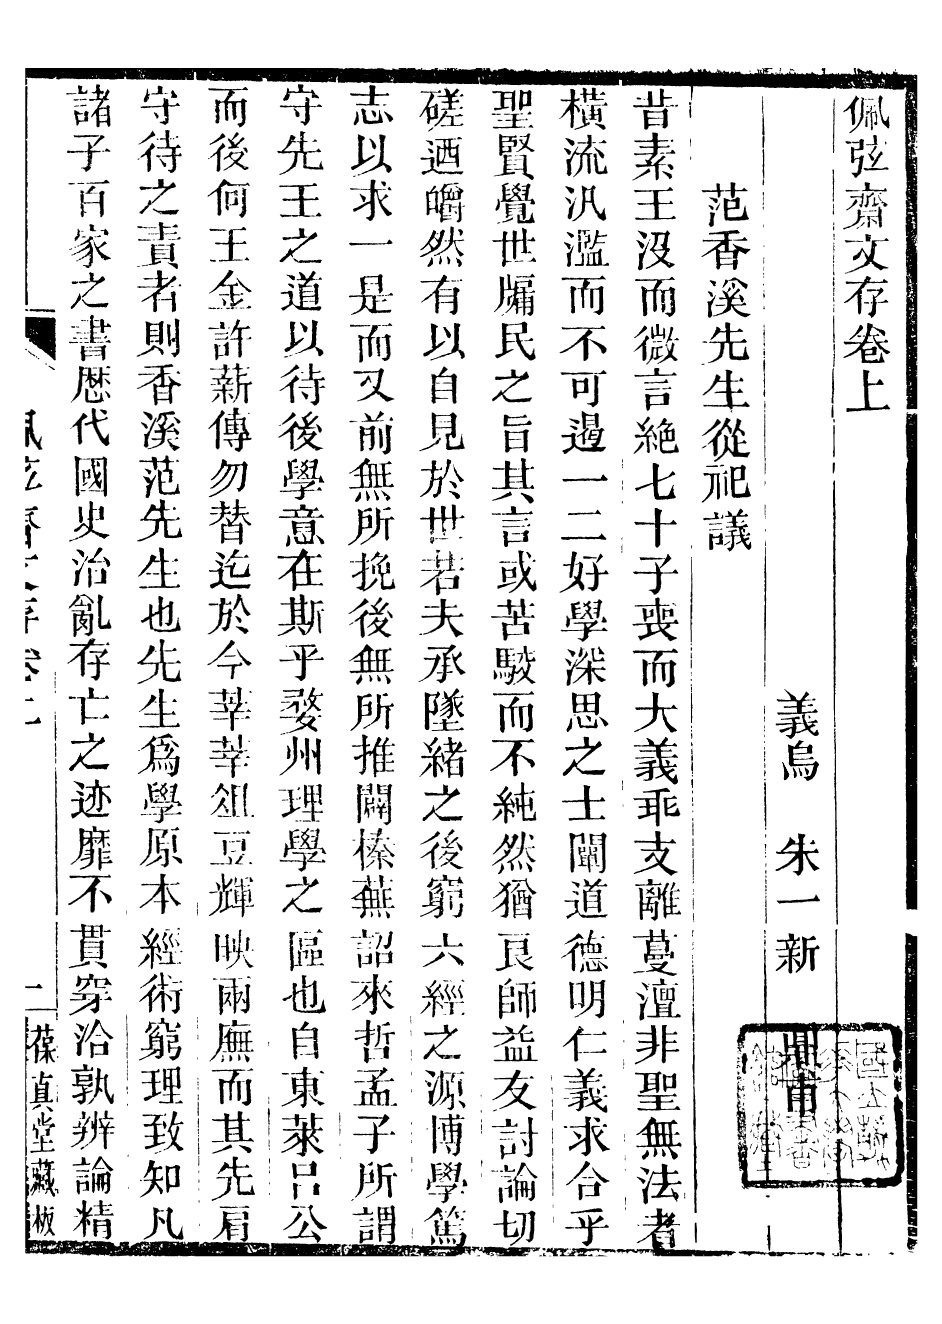 佩弦齋文存卷上
義烏　朱一新　鼎甫
范香溪先生從祀議
昔素王沒而微言絶七十子喪而大義乖支離蔓澶非聖無法者
橫流汎濫而不可遏一二好學深思之士闡道德明仁義求合乎
聖賢覺世牖民之旨其言或苦駮而不純然猶良師益友討論切
磋迺皭然有以自見於世若夫承墜緒之後窮六經之源博學篤
志以求一是而又前無所挽後無所推闢榛蕪詔來哲孟子所謂
守先王之道以待後學意在斯乎婺州理學之區也自東萊呂公
而後何王金許薪傳勿替迄於今莘莘俎豆輝映兩廡而其先肩
守待之責者則香溪范先生也先生爲學原本經術窮理致知凡
諸子百家之書歷代國史治亂存亡之迹靡不貫穿洽孰辨論精
佩弦齋文存卷上
一
葆真堂藏板